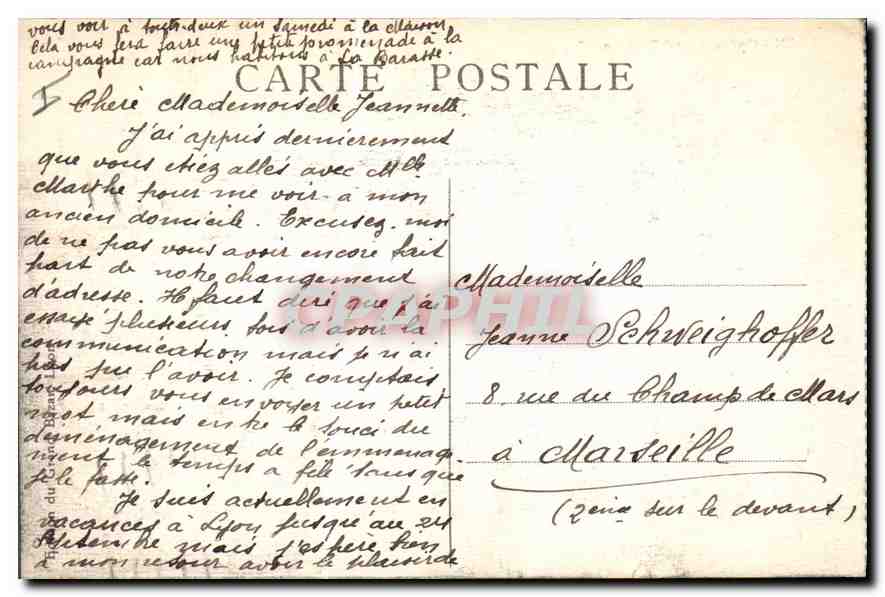 vous voir à toutes deux un samedi à la maison
Cela vous fera faire une petite promenade à la
campagne car nous habitons à La Barasse.
CARTE POSTALE
Chère Mademoiselle Jeannette.
J'ai appris dernièrement
que vous étiez allés avec Mlle
Marthe pour me voir à mon
ancien domicile. Excusez-moi
de ne pas vous avoir encore fait
part de notre changement
d'adresse. Il faut dire que j'ai
essayé plusieurs fois d'avoir la
communication mais je n'ai
pas pu l'avoir. Je comptais
toujours vous envoyer un petit
mot mais entre le souci du
déménagement de l'emménage
ment le temps a filé sans que
je le fasse.
Je suis actuellement en
vacances à Lyon jusqu'au 24
Septembre mais j'espère bien
à mon retour avoir le plaisir de
Mademoiselle
Jeanne Schweighoffer
8 rue du Champ de Mars
à Marseille
(2ème sur le devant)
du Grand Bazar Lyon
CPAPHIL